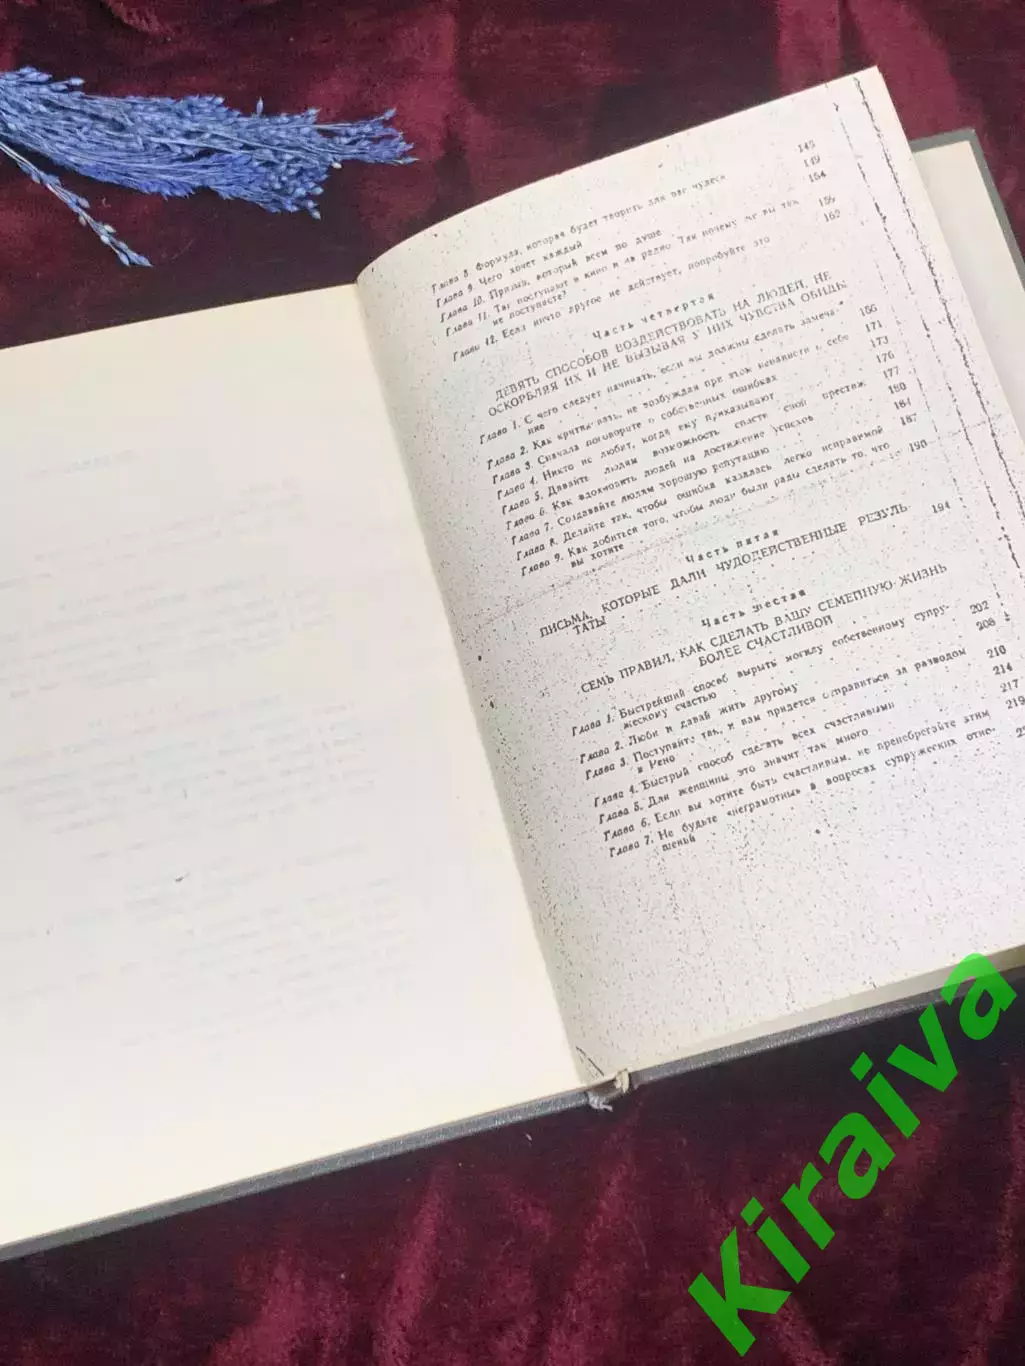 Глава 8. Формула, которая будет творить для вас чудеса 145
Глава 9. Чего хочет каждый 149
Глава 10. Призыв, который всем по душе 154
Глава 11. Так поступают в кино и на радио. Так почему же вы так
не поступаете? 159
Глава 12. Если ничто другое не действует, попробуйте это 162
Часть четвертая
ДЕВЯТЬ СПОСОБОВ ВОЗДЕЙСТВОВАТЬ НА ЛЮДЕЙ, НЕ
ОСКОРБЛЯЯ ИХ И НЕ ВЫЗЫВАЯ У НИХ ЧУВСТВА ОБИДЫ
Глава 1. С чего следует начинать, если вы должны сделать замеча-
ние 166
Глава 2. Как критиковать, не возбуждая при этом ненависти к себе 171
Глава 3. Сначала поговорите о собственных ошибках 173
Глава 4. Никто не любит, когда ему приказывают 176
Глава 5. Давайте людям возможность спасти свой престиж 177
Глава 6. Как вдохновить людей на достижение успехов 180
Глава 7. Создавайте людям хорошую репутацию 184
Глава 8. Делайте так, чтобы ошибка казалась легко исправимой 187
Глава 9. Как добиться того, чтобы люди были рады сделать то, что
вы хотите 190
Часть пятая
ПИСЬМА, КОТОРЫЕ ДАЛИ ЧУДОДЕЙСТВЕННЫЕ РЕЗУЛЬ-
ТАТЫ 194
Часть шестая
СЕМЬ ПРАВИЛ, КАК СДЕЛАТЬ ВАШУ СЕМЕЙНУЮ ЖИЗНЬ
БОЛЕЕ СЧАСТЛИВОЙ
Глава 1. Быстрейший способ вырыть могилу собственному супру-
жескому счастью 202
Глава 2. Люби и давай жить другому 208
Глава 3. Поступайте так, и вам придется отправиться за разводом
в Рено 210
Глава 4. Быстрый способ сделать всех счастливыми 214
Глава 5. Для женщины это значит так много 217
Глава 6. Если вы хотите быть счастливым, не пренебрегайте этим 219
Глава 7. Не будьте «неграмотны» в вопросах супружеских отно-
шений
Kiraiva